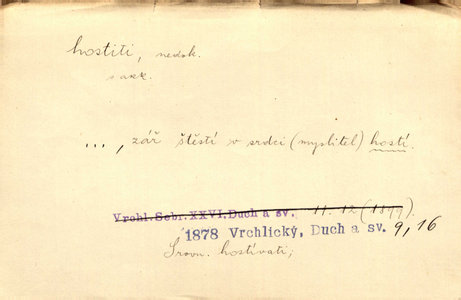 hostiti, nedok.
s akk.
..., zář štěstí v srdci (myslitel) hostí.
Vrchl. Sebr. XXVI. Duch a sv. 11. 12 (1899).
1878 Vrchlický, Duch a sv. 9, 16
Srovn. hostívati;